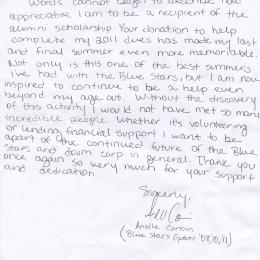 Words cannot begin to describe how
appreciative I am to be a recipient of the
alumni scholarship. Your donation to help
complete my 2011 dues has made my last
and final summer even more memorable.
Not only is this one of the best summers
I've had with the Blue Stars, but I am now
inspired to continue to be a help even
beyond my age out. Without the discovery
of this activity I would not have met so many
incredible people. Whether its volunteering
or lending financial support I want to be
apart of the continued future of the Blue
Stars and drum corp in general. Thank you
once again so very much for your support
and dedication.
Sincerely,
Arielle Corbin
(Blue Stars Guard '09,'10,'11)